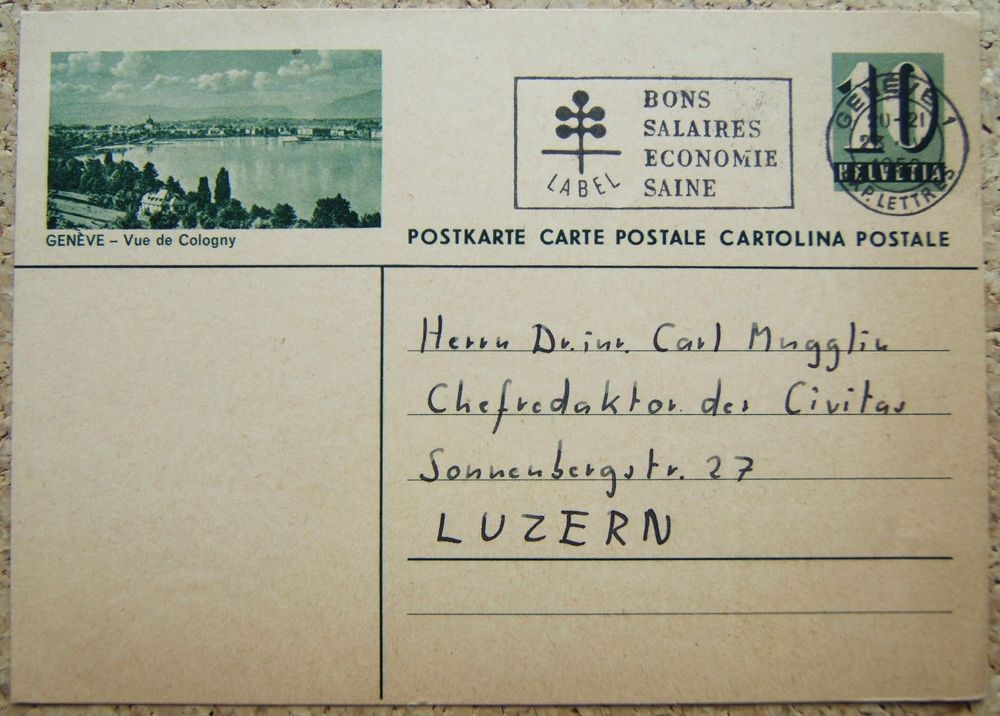 GENÈVE – Vue de Cologny
LABEL
BONS
SALAIRES
ECONOMIE
SAINE
10
HELVETIA
GENÈVE 1
20-21
EXP. LETTRES
POSTKARTE CARTE POSTALE CARTOLINA POSTALE
Herrn Dr.iur. Carl Mugglin
Chefredaktor der Civitas
Sonnenbergstr. 27
LUZERN